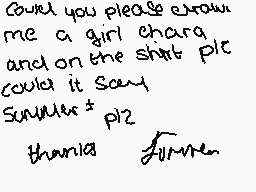 Could you please draw
me a girl chara
and on the shirt plz
could it say
summer ± plz
thanks Summer